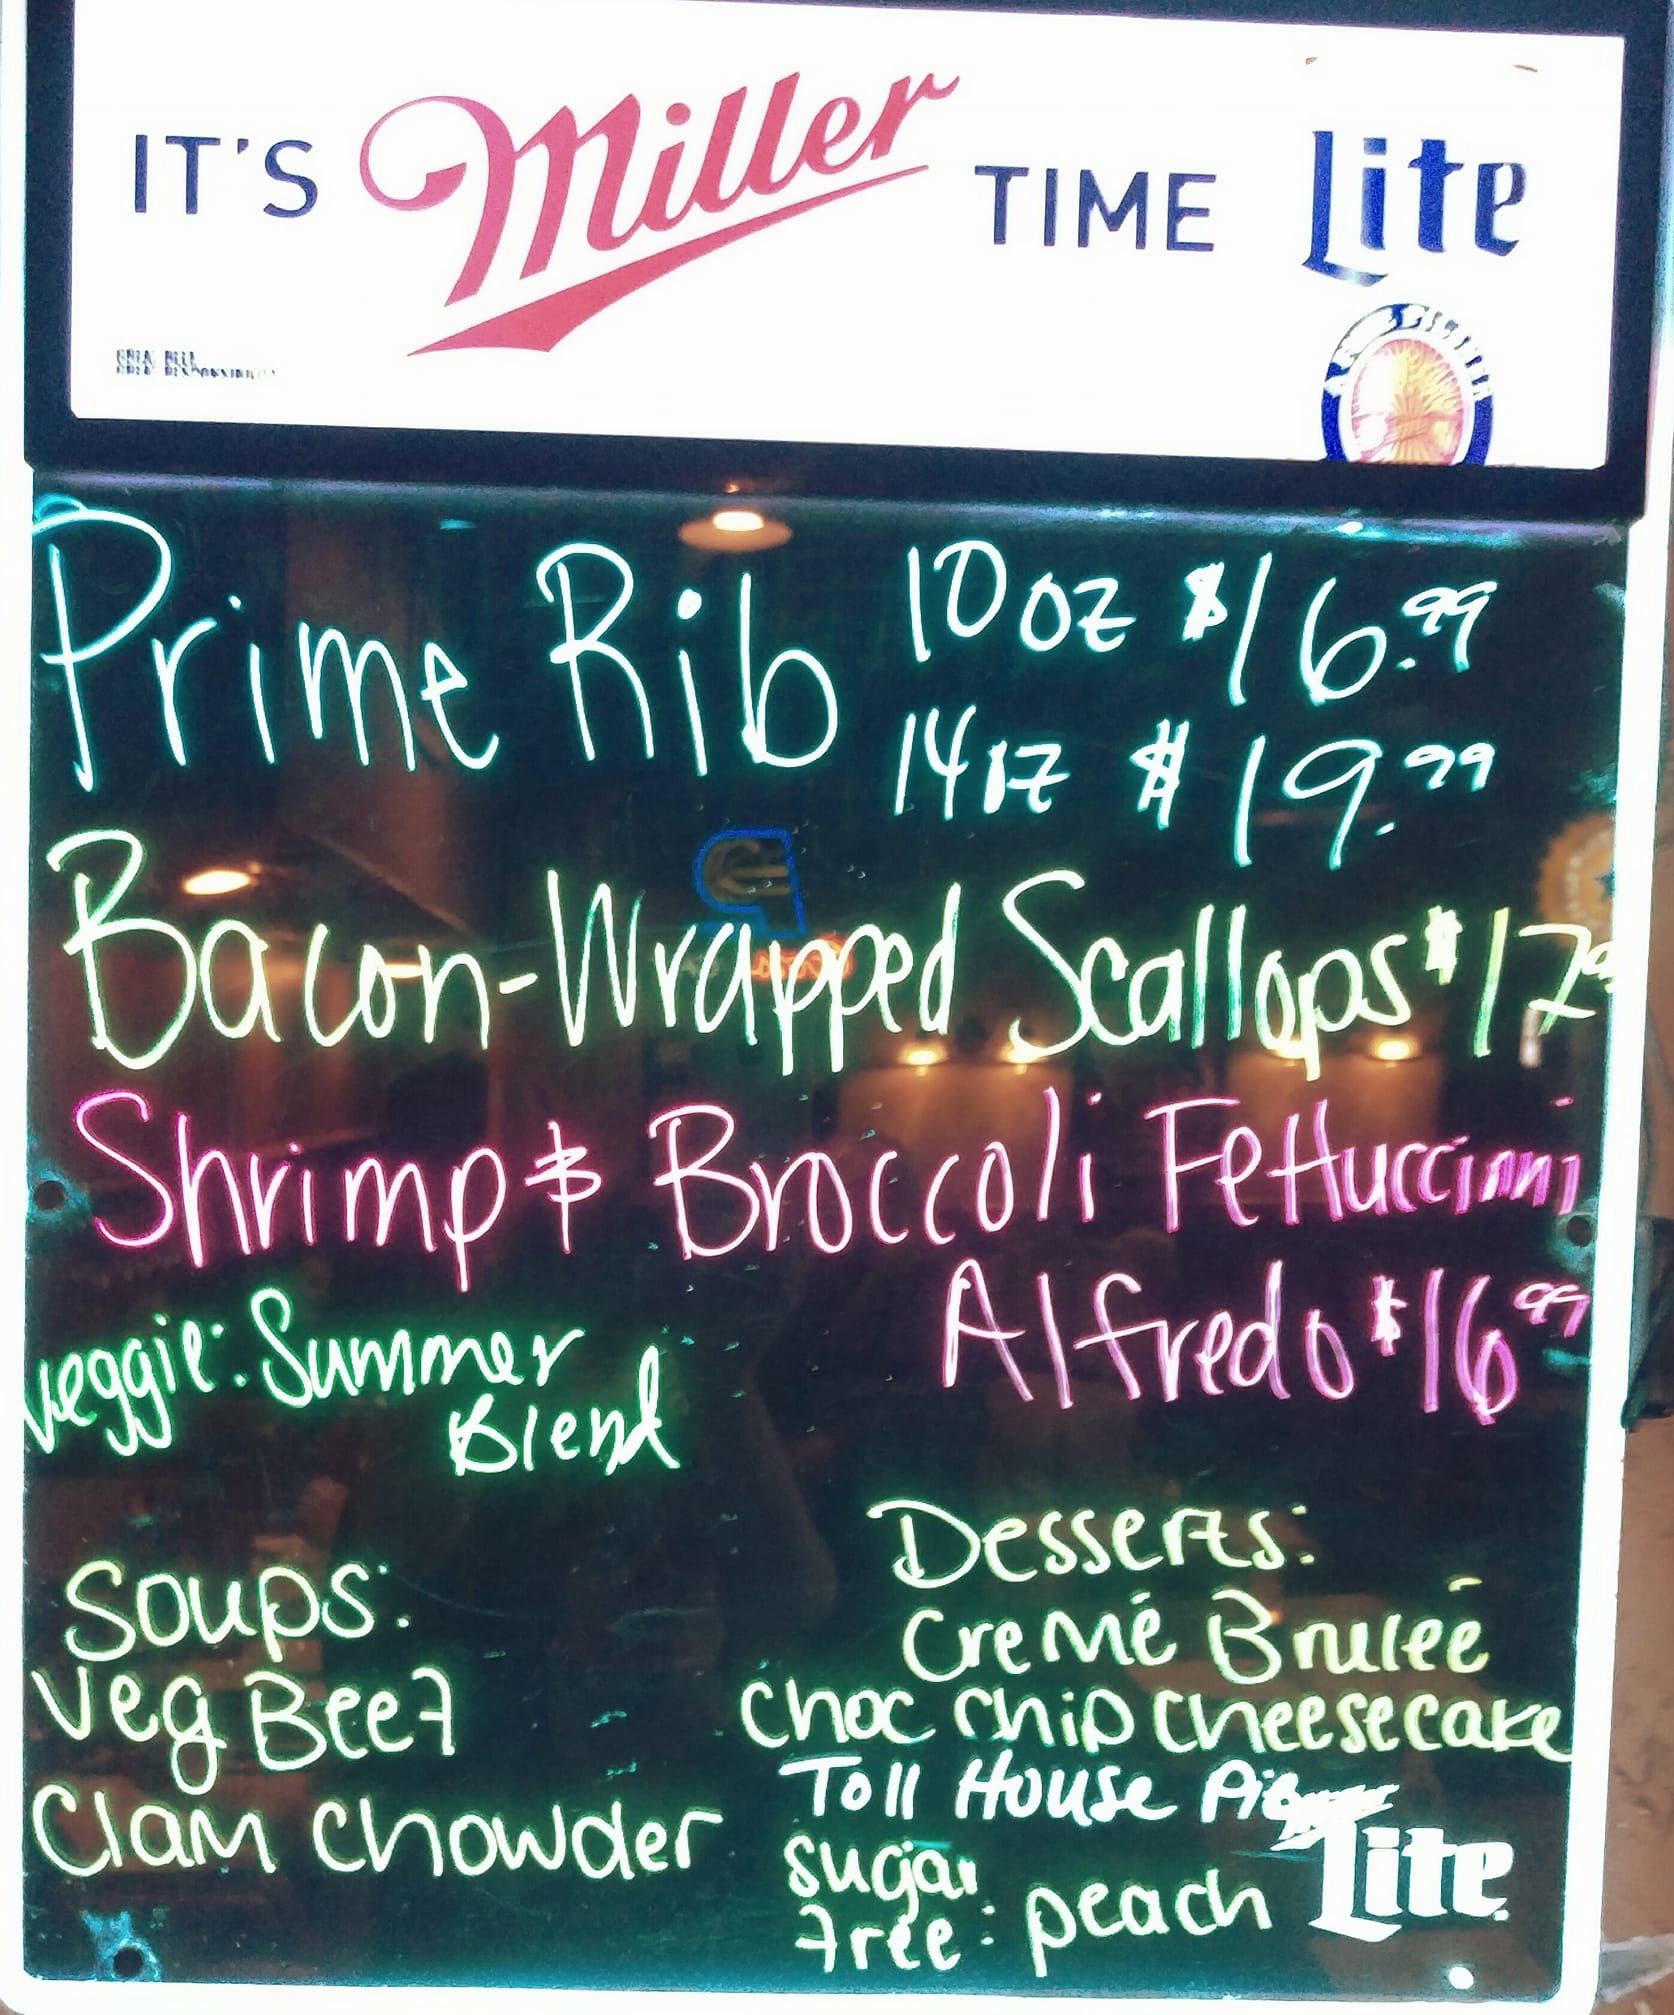 IT'S Miller TIME Lite
Prime Rib 10 oz $16.99
14 oz $19.99
Bacon-Wrapped Scallops $17
Shrimp & Broccoli Fettuccinni
Alfredo $16.99
Veggie: Summer
Blend
Soups:
Veg Beef
Clam Chowder
Desserts:
Cremé Brulee
Choc Chip Cheesecake
Toll House Pie
Sugar
Free: peach
Lite